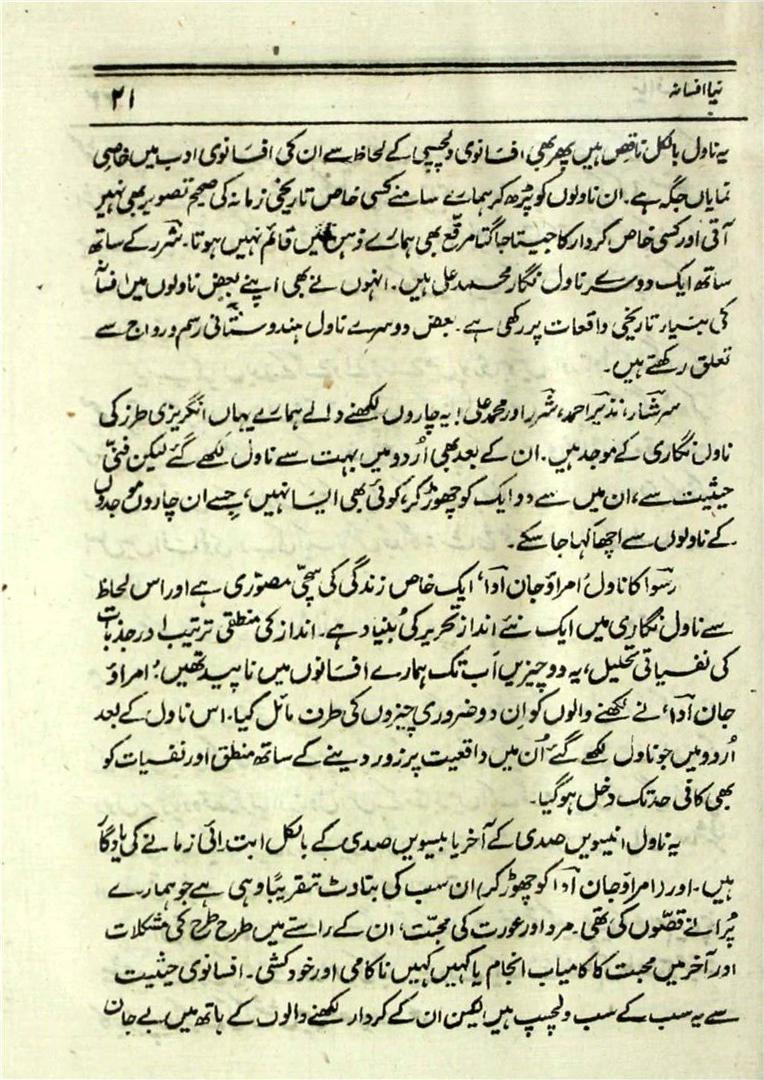 نیا افسانہ
۲۱
یہ ناول بالکل ناقص ہیں پھر بھی، افسانوی دلچسپی کے لحاظ سے ان کی افسانوی ادب میں خاصی
نمایاں جگہ ہے۔ ان ناولوں کو پڑھ کر ہمارے سامنے کسی خاص تاریخی زمانہ کی صحیح تصویر بھی نہیں
آتی اور کسی خاص کردار کا جیتا جاگتا مرقّع بھی ہمارے ذہن میں قائم نہیں ہوتا۔ شرر کے ساتھ
ساتھ ایک دوسرے ناول نگار محمد علی ہیں۔ انہوں نے بھی اپنے بعض ناولوں میں افسانہ
کی بنیاد تاریخی واقعات پر رکھی ہے۔ بعض دوسرے ناول ہندوستانی رسم و رواج سے
تعلق رکھتے ہیں۔
سرشار، نذیر احمد، شرر اور محمد علی! یہ چاروں لکھنے والے ہمارے یہاں انگریزی طرز کی
ناول نگاری کے موجد ہیں۔ ان کے بعد بھی اُردو میں بہت سے ناول لکھے گئے لیکن فنّی
حیثیت سے، ان میں سے دو ایک کو چھوڑ کر، کوئی بھی ایسا نہیں، جسے ان چاروں موجدوں
کے ناولوں سے اچھا کہا جا سکے۔
رسوا کا ناول 'امراؤ جان ادا' ایک خاص زندگی کی سچّی مصوّری ہے اور اس لحاظ
سے ناول نگاری میں ایک نئے انداز تحریر کی بُنیاد ہے۔ انداز کی منطقی ترتیب اور جذبات
کی نفسیاتی تحلیل، یہ دو چیزیں اَب تک ہمارے افسانوں میں ناپید تھیں؛ 'امراؤ
جان ادا' نے لکھنے والوں کو اِن دو ضروری چیزوں کی طرف مائل کیا۔ اس ناول کے بعد
اُردو میں جو ناول لکھے گئے اُن میں واقعیت پر زور دینے کے ساتھ منطق اور نفسیات کو
بھی کافی حد تک دخل ہو گیا۔
یہ ناول انیسویں صدی کے آخر یا بیسویں صدی کے بالکل ابتدائی زمانے کی یادگار
ہیں۔ اور (امراؤ جان ادا کو چھوڑ کر) ان سب کی بناوٹ تقریبًا وہی ہے جو ہمارے
پُرانے قصّوں کی تھی۔ مرد اور عورت کی محبّت، ان کے راستے میں طرح طرح کی مشکلات
اور آخر میں محبت کا کامیاب انجام یا کہیں کہیں ناکامی اور خودکشی۔ افسانوی حیثیت
سے یہ سب کے سب دلچسپ ہیں لیکن ان کے کردار لکھنے والوں کے ہاتھ میں بے جان